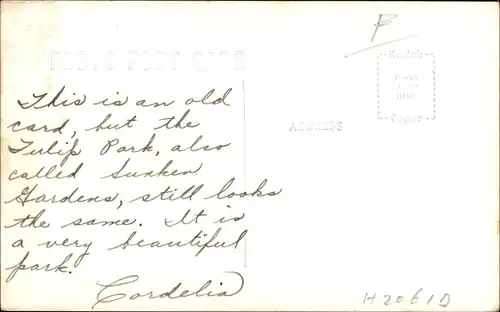 PHOTO POST CARD
F
Kodak
PLACE
STAMP
HERE
Paper
ADDRESS
This is an old
card, but the
Tulip Park, also
called Sunken
Gardens, still looks
the same. It is
a very beautiful
park.
Cordelia
H2061D